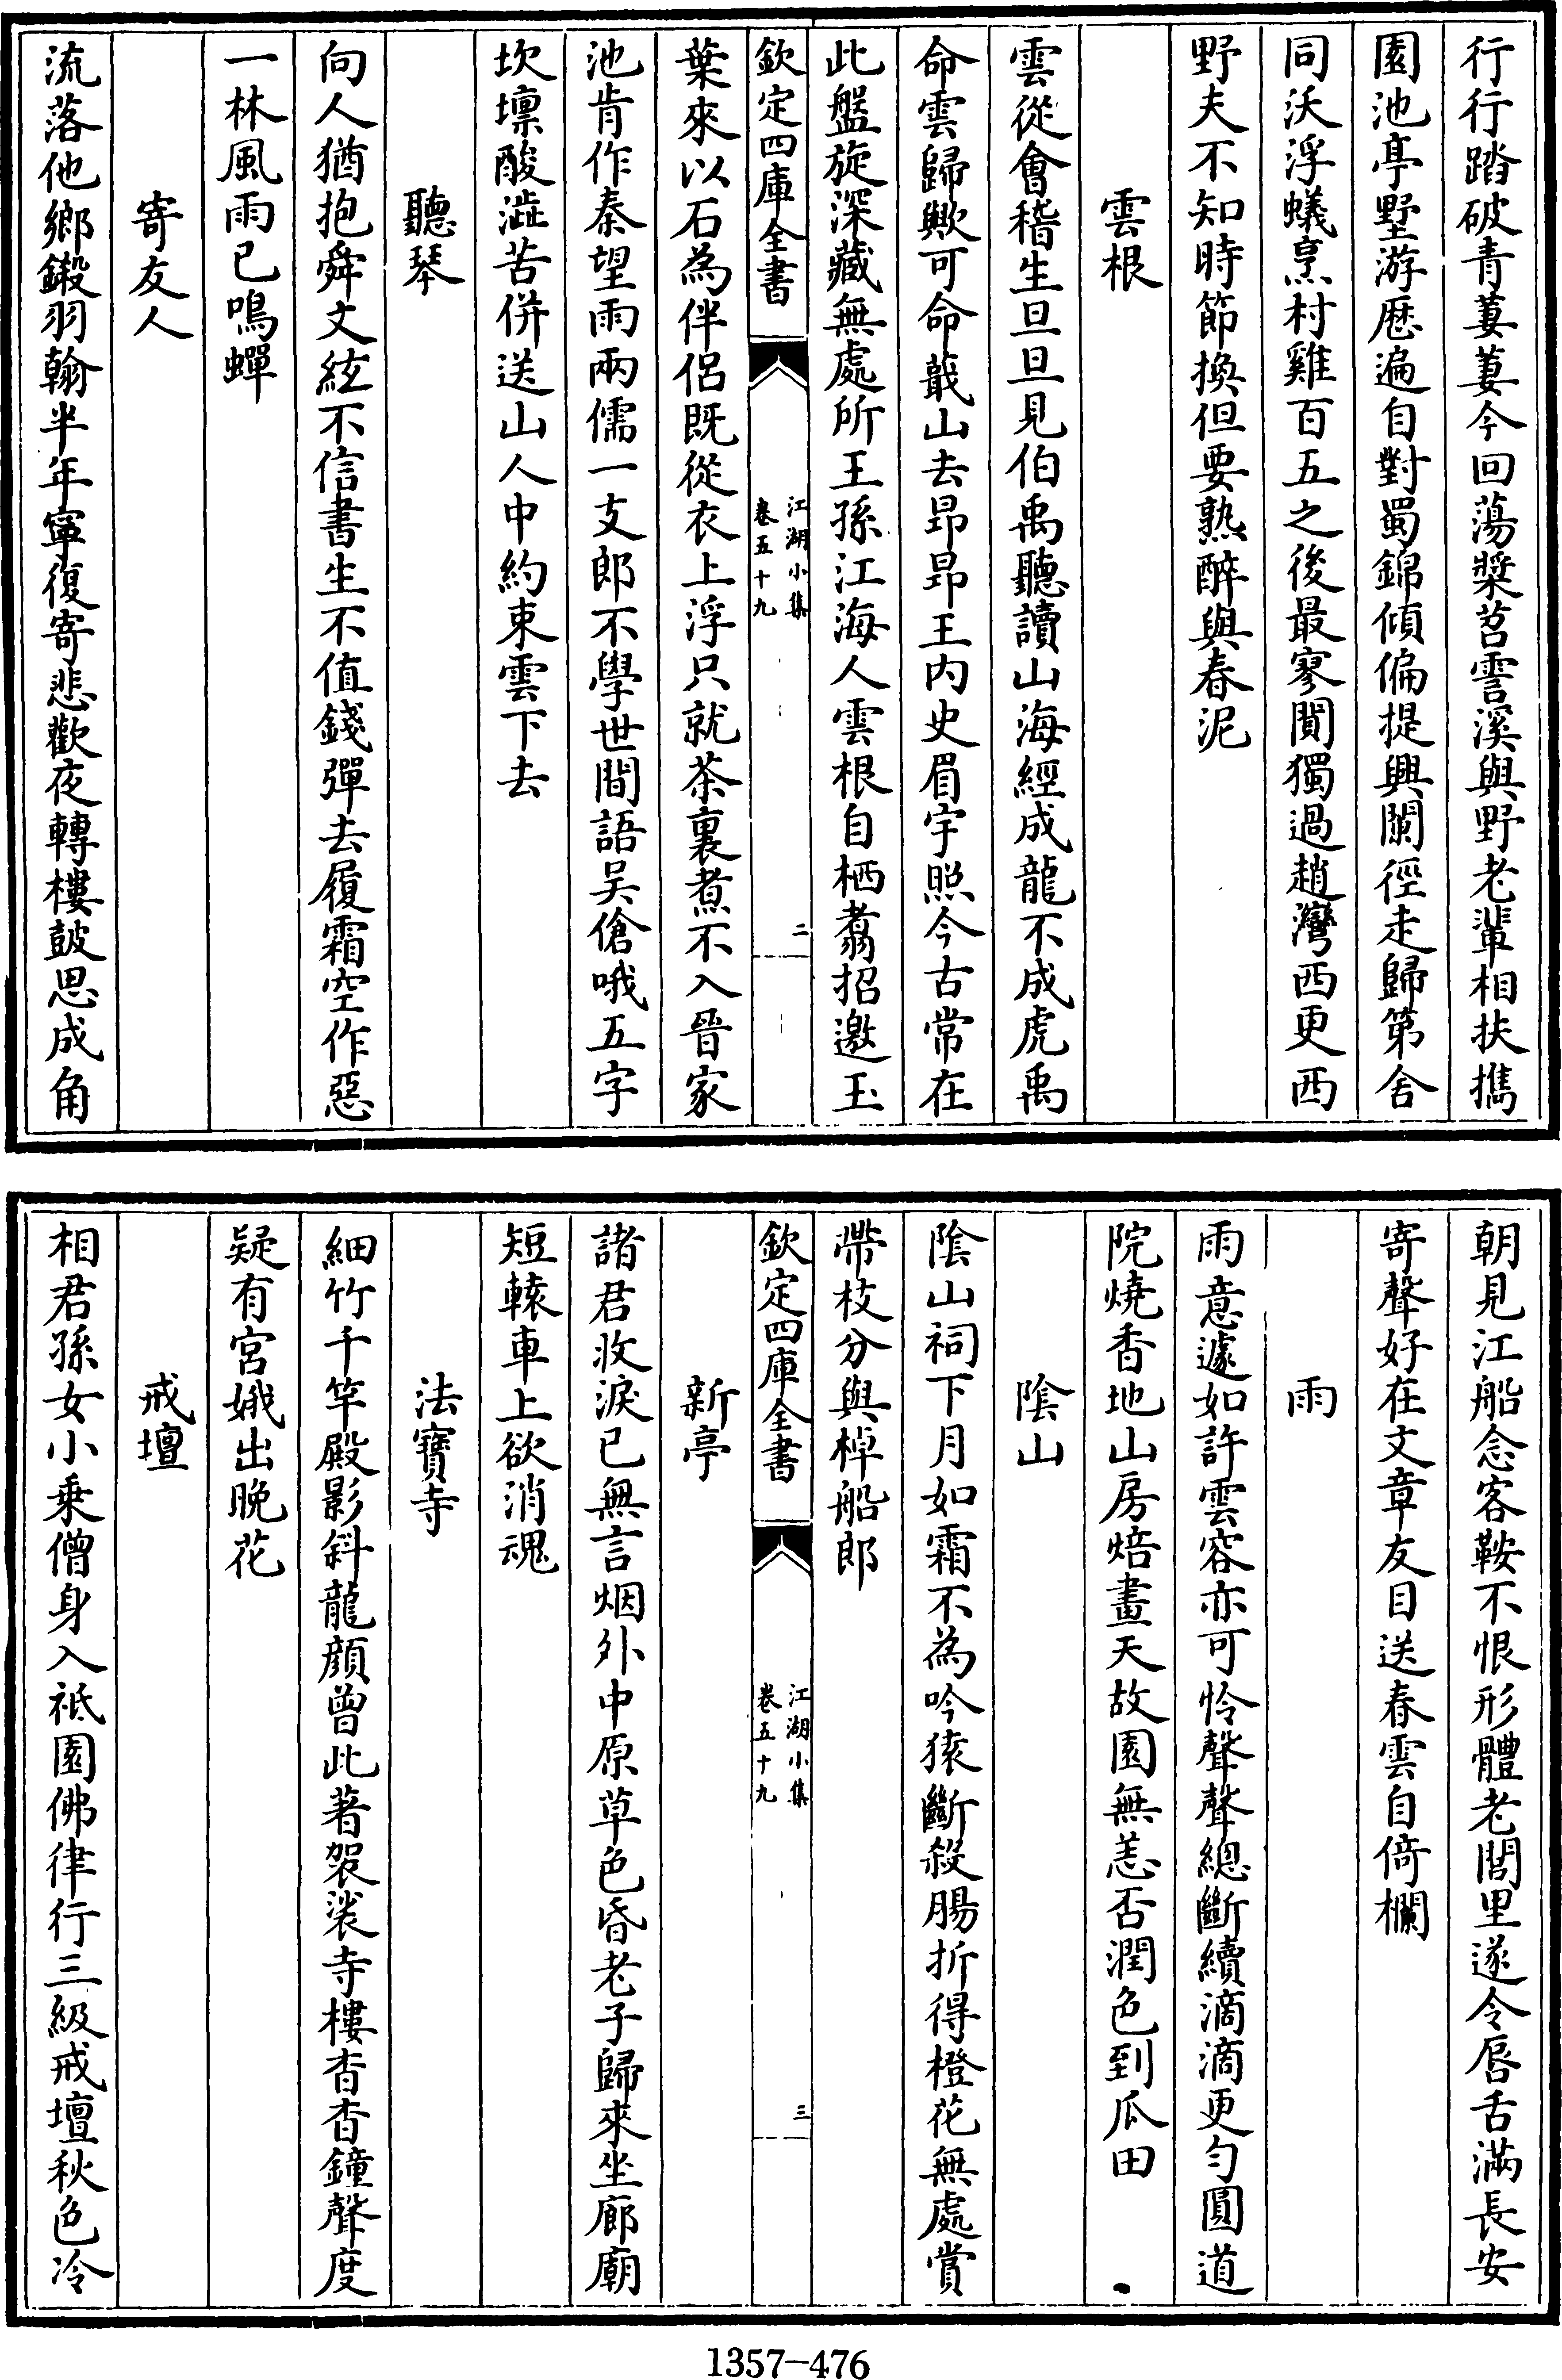 行行踏破青萋萋今回蕩槳苕霅溪與野老輩相扶擕
園池亭墅游歴遍自對蜀錦傾偏提興闌徑走歸第舍
同沃浮蟻烹村雞百五之後最寥闃獨過趙灣西更西
野夫不知時節換但要熟醉與春泥
雲根
雲從會稽生旦旦見伯禹聽讀山海經成龍不成虎禹
命雲歸歟可命蕺山去昂昂王内史眉宇照今古常在
此盤旋深藏無處所王孫江海人雲根自栖翥招邀玉
欽定四庫全書
江湖小集
卷五十九
二
葉來以石為伴侣既從衣上浮只就茶裏煮不入晉家
池肯作秦望雨兩儒一支郎不學世間語吴傖哦五字
坎壈酸澁苦併送山人中約束雲下去
聽琴
向人猶抱舜文絃不信書生不值錢彈去履霜空作惡
一林風雨已鳴蟬
寄友人
流落他鄉鎩羽翰半年寧復寄悲歡夜轉樓鼓思成角
朝見江船念客鞍不恨形體老閭里遂令唇舌滿長安
寄聲好在文章友目送春雲自倚欄
雨
雨意遽如許雲容亦可怜聲聲總斷續滴滴更匀圓道
院燒香地山房焙畫天故園無恙否潤色到瓜田
陰山
陰山祠下月如霜不為吟猿斷殺腸折得橙花無處賞
帶枝分與棹船郎
欽定四庫全書
江湖小集
卷五十九
三
新亭
諸君收淚已無言烟外中原草色昏老子歸來坐廊廟
短轅車上欲消魂
法寶寺
細竹千竿殿影斜龍顔曾此著袈裟寺樓杳杳鐘聲度
疑有宮娥出晚花
戒壇
相君孫女小乗僧身入祇園佛律行三級戒壇秋色冷
1357-476